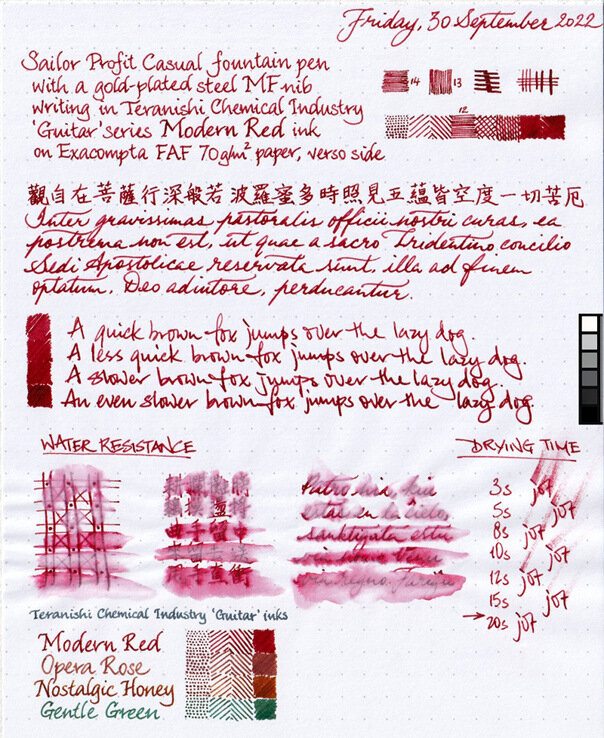 Friday, 30 September 2022
Sailor Profit Casual fountain pen
with a gold-plated steel MF nib
writing in Teranishi Chemical Industry
'Guitar' series Modern Red ink
on Exacompta FAF 70g/m² paper, verso side
14 13
12
觀自在菩薩行深般若波羅蜜多時照見五蘊皆空度一切苦厄
Inter gravissimas pastoralis officii nostri curas, ea
postrema non est, ut quae a sacro Tridentino concilio
Sedi Apostolicae reservata sunt, illa ad finem
optatum, Deo adiutore, perducantur.
A quick brown fox jumps over the lazy dog.
A less quick brown fox jumps over the lazy dog.
A slower brown fox jumps over the lazy dog.
An even slower brown fox jumps over the lazy dog.
WATER RESISTANCE
由手留中
Patro nia, kiu
estas en la ĉielo,
sanktigata estu
DRYING TIME
3s jot
5s jot
8s jot
10s jot
12s jot
15s jot
20s jot
Teranishi Chemical Industry 'Guitar' inks
Modern Red
Opera Rose
Nostalgic Honey
Gentle Green